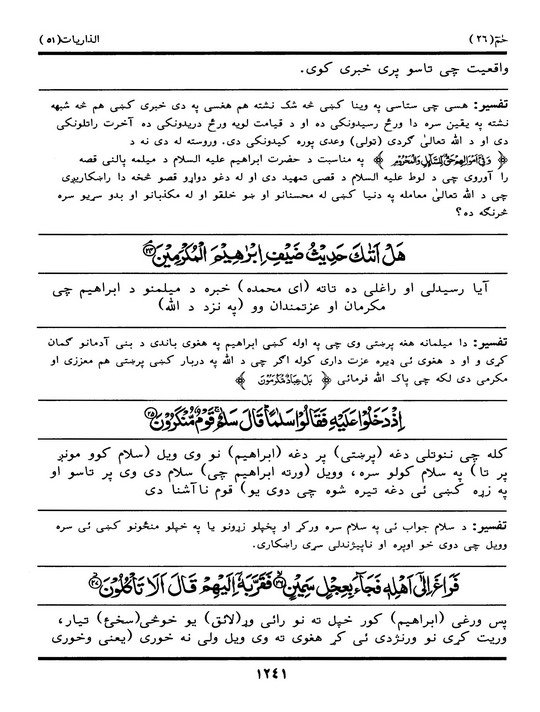 حٰمٓ(٢٦) الذاريات(٥١)
واقعيت چي تاسو پري خبري كوی.
تفسير: هسي چي ستاسي په وينا كښي څه شک نشته هم هغسي په دي خبري كښي هم څه شبهه
نشته په يقين سره دا ورځ رسيدونكی ده او د قيامت لويه ورځ دريدونكی ده آخرت راتلونكی
دی او د الله تعالیٰ گردی (ټولی) وعدی پوره كيدونكی دی. وروسته له دی نه د
﴿ ﴾ په مناسبت د حضرت ابراهيم عليه السلام د ميلمه پالنی قصه
را آوروی چی د لوط عليه السلام د قصی تمهيد دی او له دغو دواړو قصو څخه دا راښكاريږی
چی د الله تعالیٰ معامله په دنيا كښی له محسنانو او ښو خلقو او له مكذبانو او بدو سړيو سره
څرنگه ده؟
هَلْ اَتٰىكَ حَدِيْثُ ضَيْفِ اِبْرٰهِيْمَ الْمُكْرَمِيْنَ ﴿٢٤﴾
آيا رسيدلی او راغلی ده تاته (ای محمده) خبره د ميلمنو د ابراهيم چی
مكرمان او عزتمندان وو (په نزد د الله)
تفسير: دا ميلمانه هغه پرښتی وی چي په اوله كښی ابراهيم په هغوی باندی د بنی آدمانو گمان
كړی و او د هغوی ئی ډيره عزت داری كوله اگر چی د الله په دربار كښی پرښتی هم معززی او
مكرمی دی لكه چی پاک الله فرمائی ﴿ بَلْ عِبَادٌ مُّكْرَمُوْنَ ﴾
اِذْ دَخَلُوْا عَلَيْهِ فَقَالُوْا سَلٰمًا قَالَ سَلٰمٌ قَوْمٌ مُّنْكَرُوْنَ ﴿٢٥﴾
كله چی ننوتلی دغه (پرښتی) پر دغه (ابراهيم) نو وی ويل (سلام كوو مونږ
پر تا) په سلام كولو سره، وويل (ورته ابراهيم چی) سلام دی وی پر تاسو او
په زړه كښی ئی دغه تيره شوه چی دوی يو) قوم ناآشنا دی
تفسير: د سلام جواب ئی په سلام سره وركړ او پخپلو زړونو يا په خپلو منځونو كښی ئی سره
وويل چی دوی خو اوپره او ناپيژندلی سړی راښكاری.
فَرَاغَ اِلٰٓى اَهْلِهٖ فَجَآءَ بِعِجْلٍ سَمِيْنٍ ﴿٢٦﴾ فَقَرَّبَهٗٓ اِلَيْهِمْ قَالَ اَلَا تَاْكُلُوْنَ ﴿٢٧﴾
پس ورغی (ابراهيم) كور خپل ته نو رائی وړ(لائق) يو خوڅی(سخی) تيار،
وريت كړی نو ورنژدی ئی كړ هغوی ته وی ويل ولی نه خوری (يعنی وخوری
١٢٤١